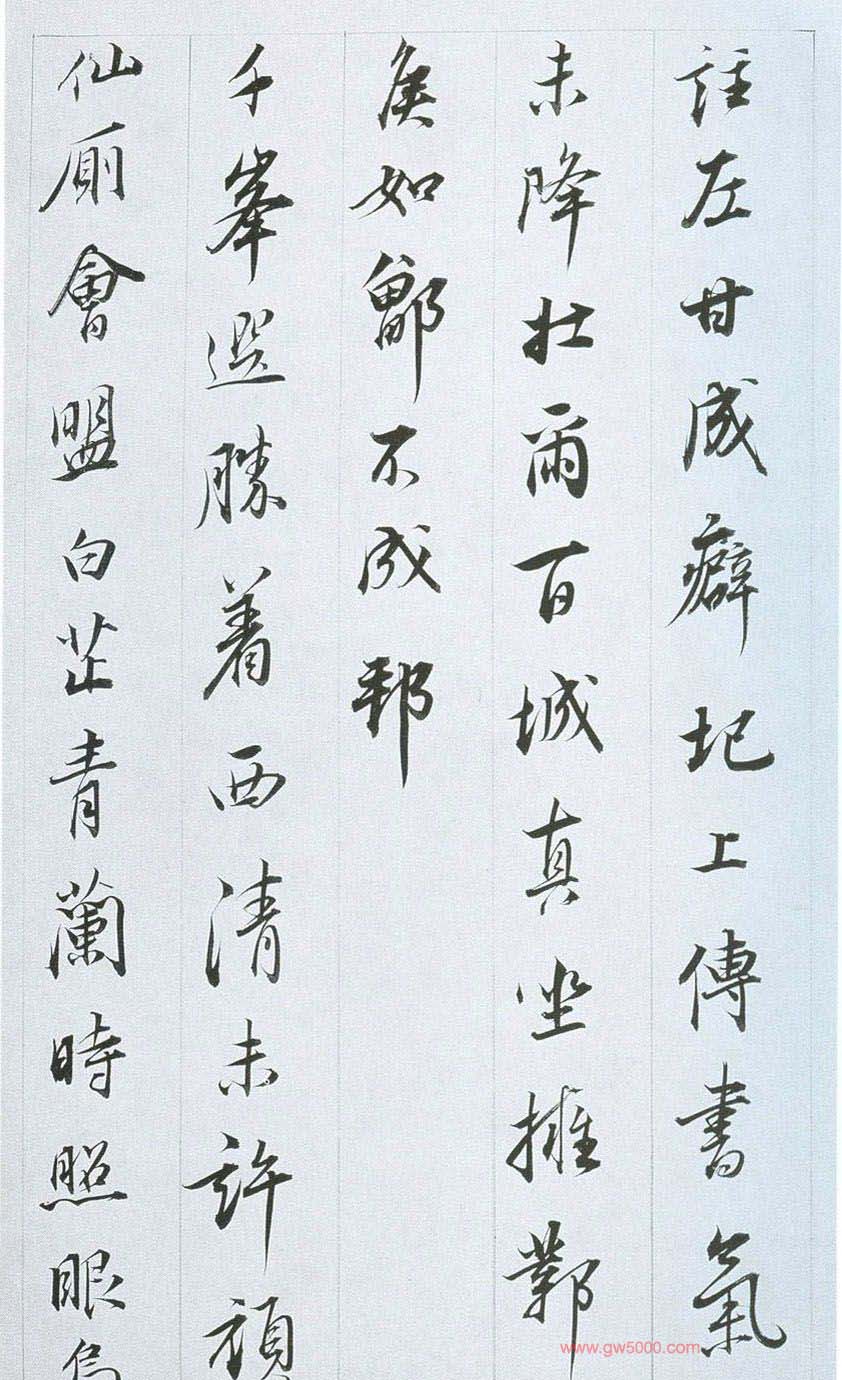 註左甘成癖圯上傳書氣
未降壯爾百城真坐擁鄴
侯如鄶不成邦
千峯選勝着西清未許頑
仙廁會盟白芷青蘭時照眼
www.gw5000.com